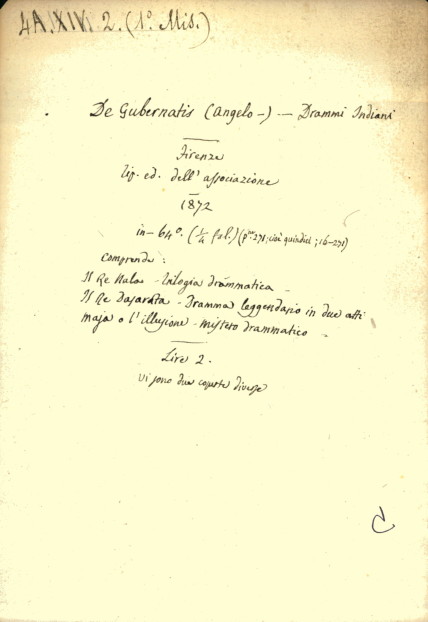 4A.XIV. 2. (1.º Mis.)
De Gubernatis (Angelo-) — Drammi Indiani
Firenze
Tip. ed. dell'associazione
1872
in-64º. (¼ fol.) (pine 271; cioè quindici; 16-271)
Comprende:
Il Re Nalas - Trilogia drammatica -
Il Re Dasarata - Dramma leggendario in due atti
Maja o l'illusione - Mistero drammatico -
Lire 2.
Vi sono due coperte diverse